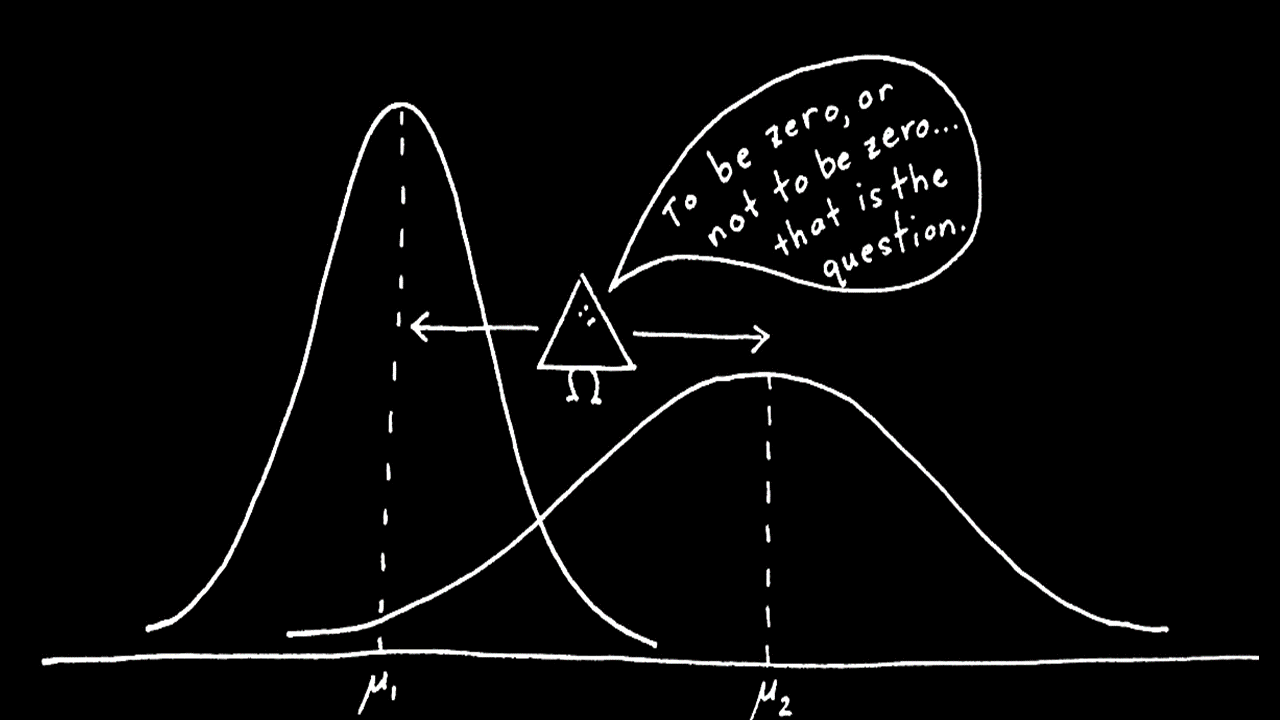 To be zero, or
not to be zero...
that is the
question.
μ₁
μ₂